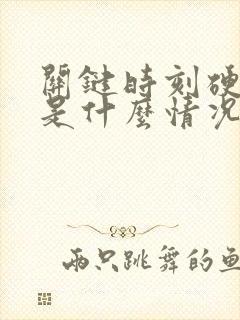 關鍵時刻硬
是什麼情況
兩只跳舞的魚